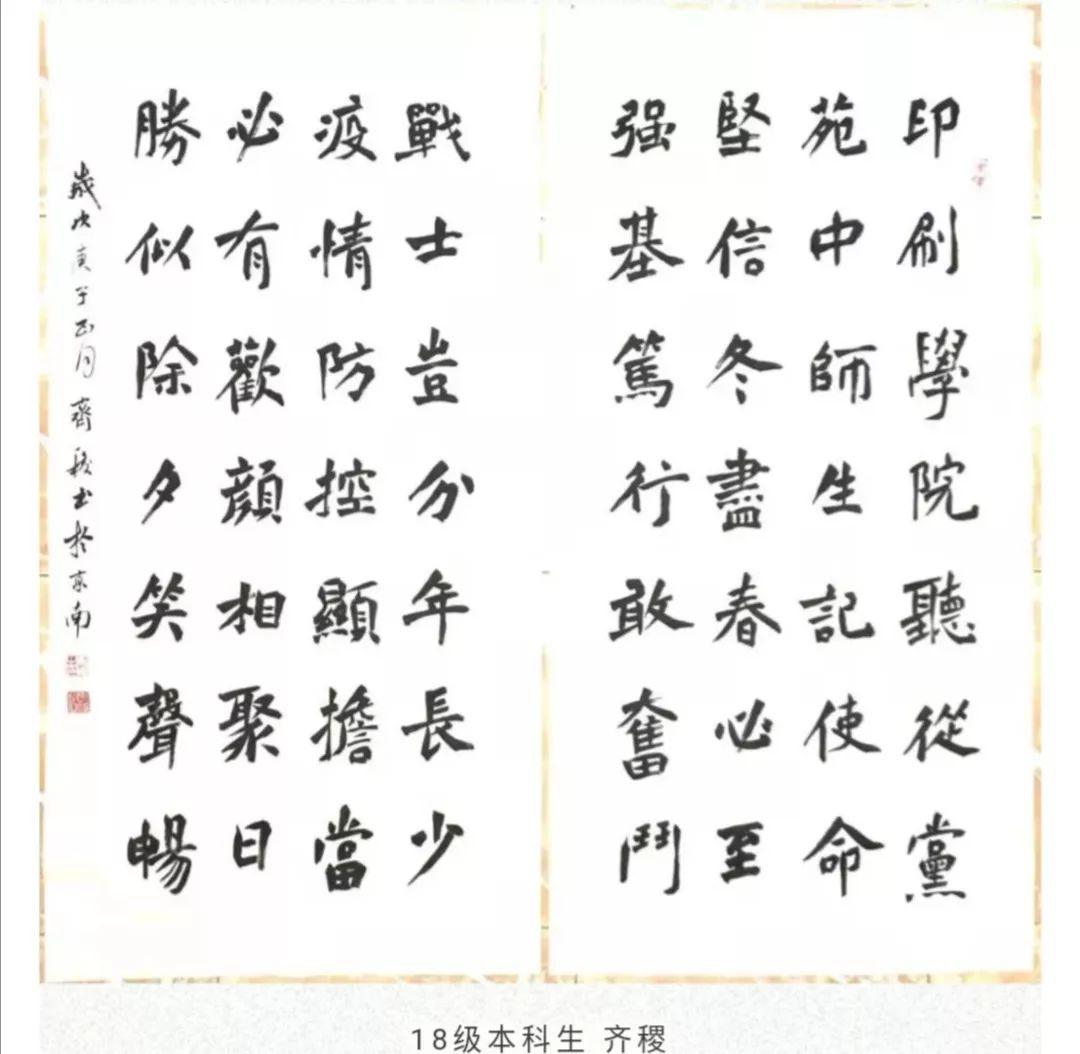 印刷學院聽從黨
苑中師生記使命
堅信冬盡春必至
强基篤行敢奮鬥
戰士豈分年長少
疫情防控顯擔當
必有歡顔相聚日
勝似除夕笑聲暢
歲次庚子正月齊稷书於京南
18级本科生 齐稷